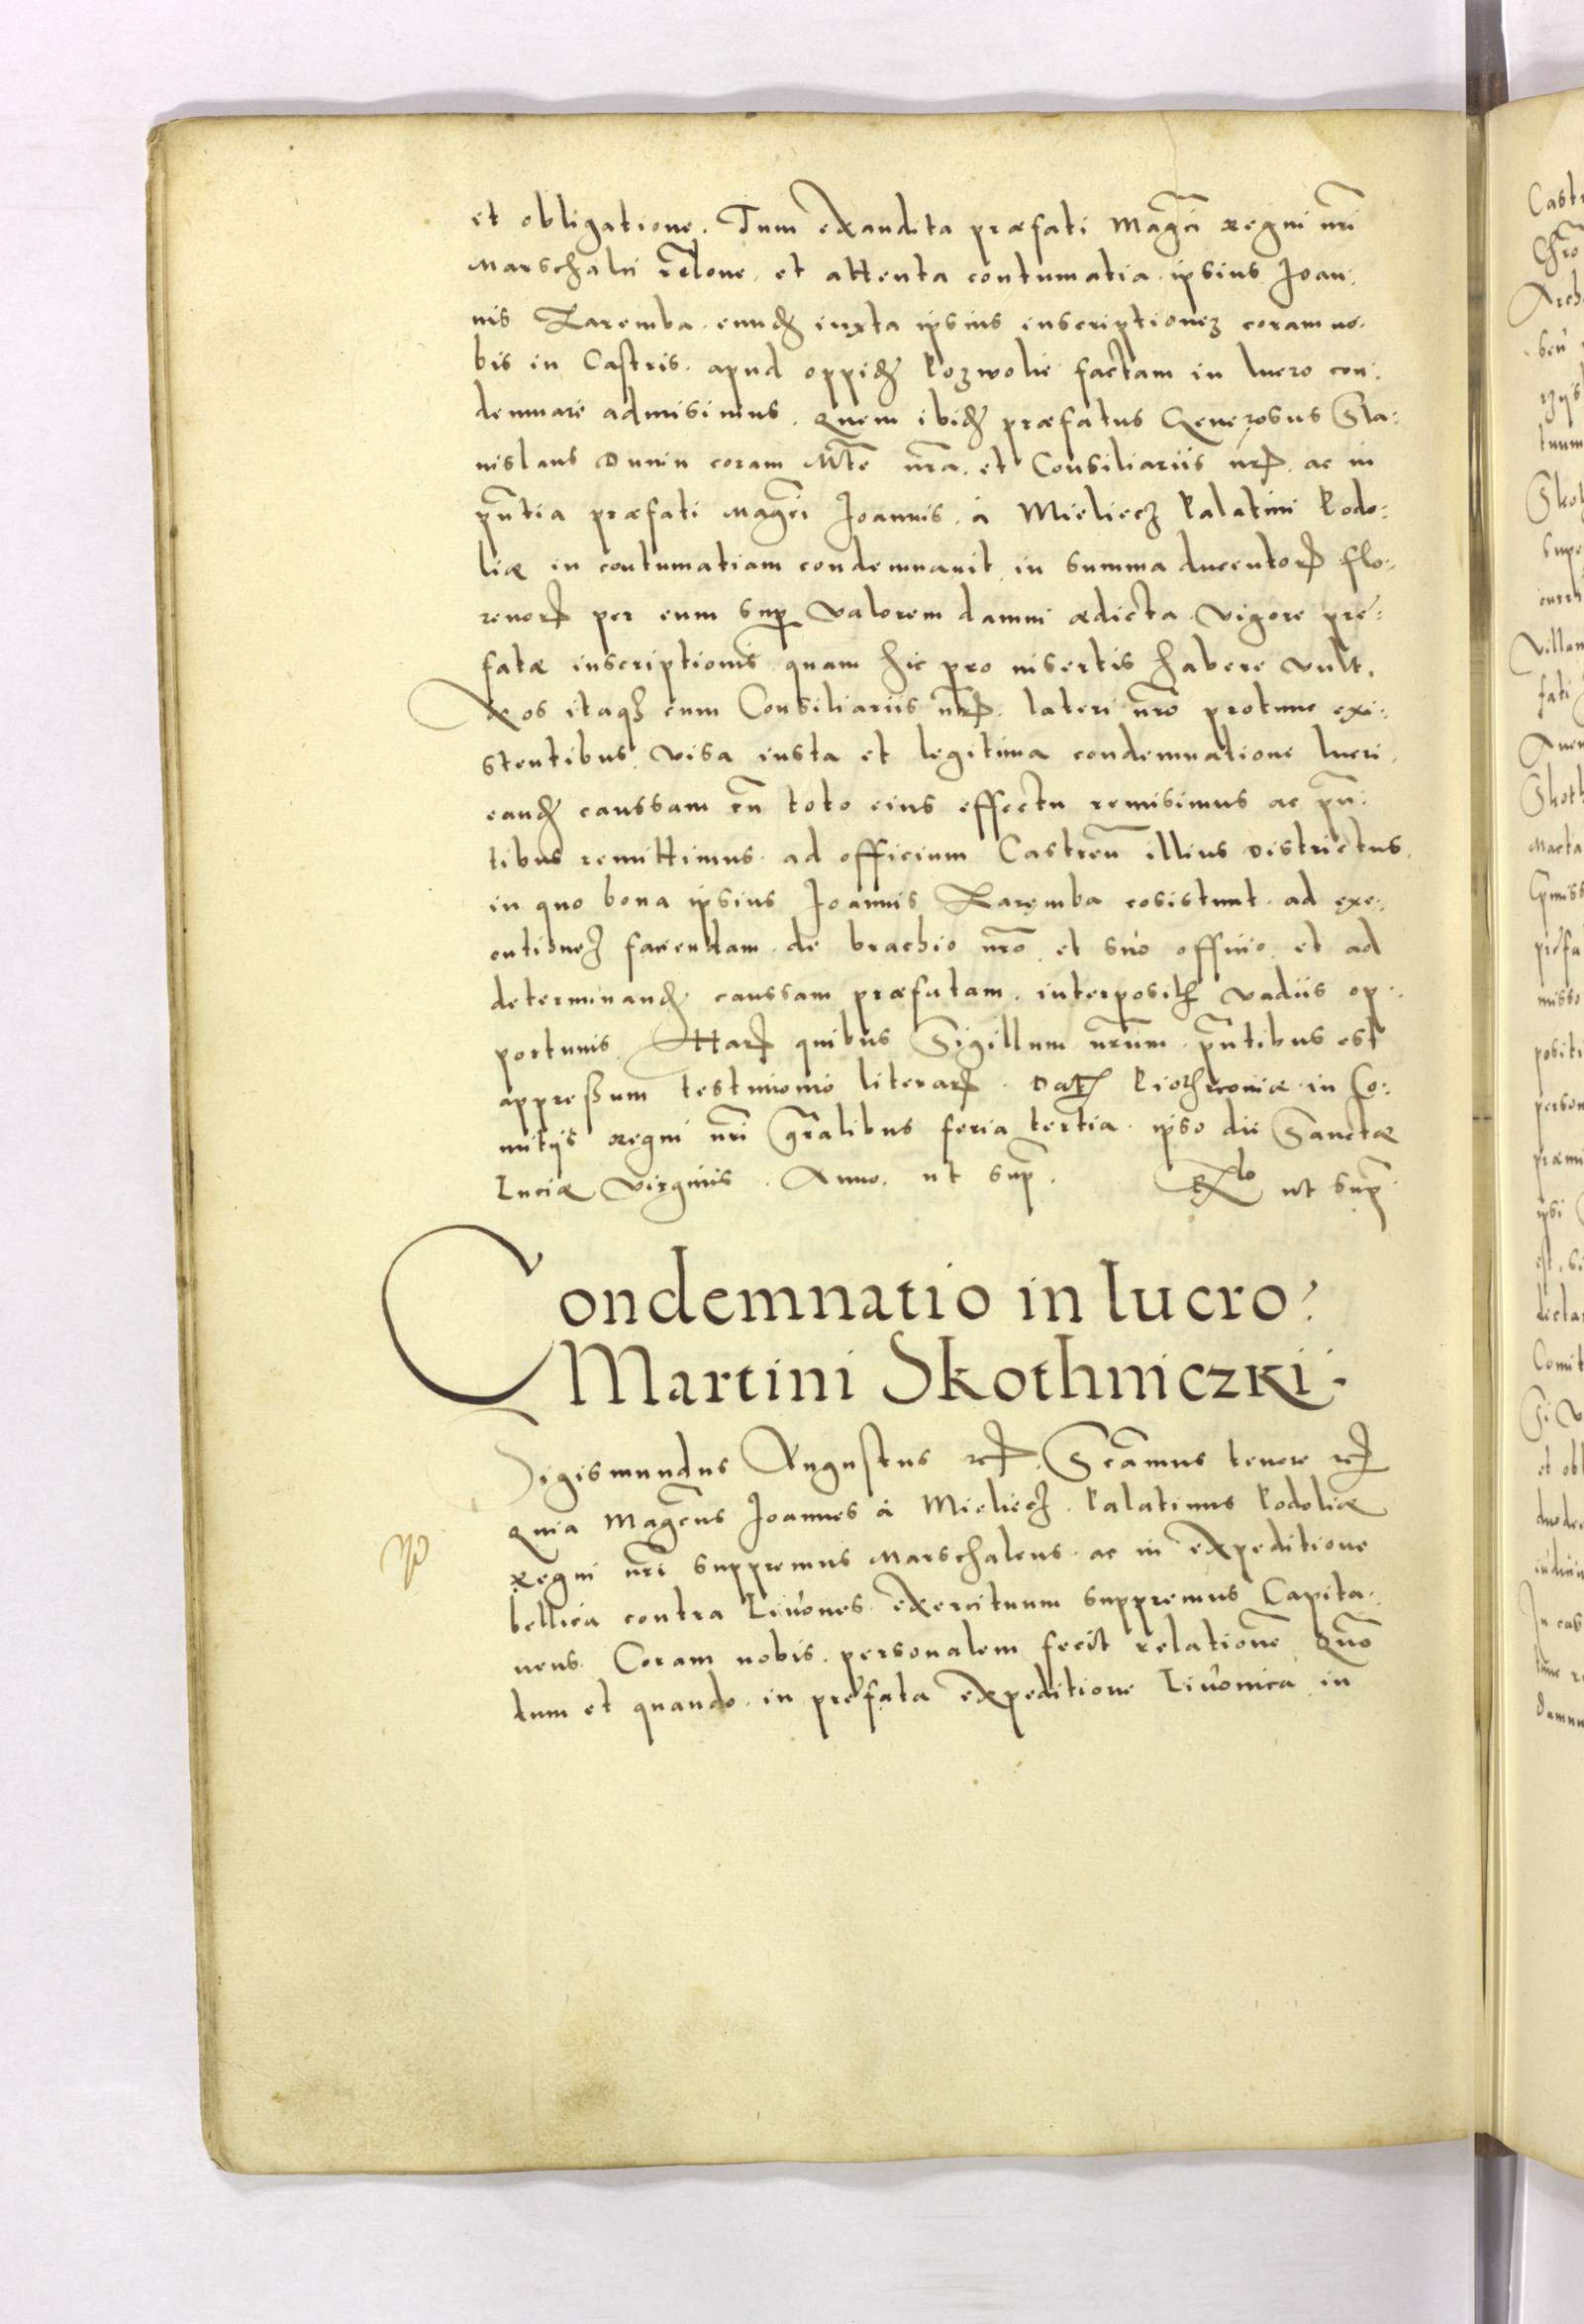 et obligatione. Tum exaudita præfati Mag̃ci regni nr̃i
Marschalci rel̃one. et attenta contumatia ipsius Joan:
nis Zaremba. eundẽ iuxta ipsius inscriptionez coram no:
bis in Castris. apud oppidũ Pozwolie factam in lucro con:
demnare admisimus. Quem ibidẽ præfatus Generosus Sta:
nislaus Dunin coram Mt̃e nr̃a. et Consiliariis nr̃is. ac in
pñtia præfati Mag̃ci Joannis. à Mieliecz Palatini Podo:
liæ in contumatiam condemnauit in summa ducentorꝝ flo:
renorꝝ per eum sup̱ valorem damni ædicta. vigore præ:
fatæ inscriptionis quam hic pro insertis habere vult.
Nos itaqꝫ cum Consiliariis nr̃is. lateri nr̃o protunc exi:
stentibus. visa iusta et legitima condemnatione lucri.
eandẽ caussam cũ toto eius effectu remisimus ac pñ:
tibus remittimus. ad officium Castreñ illius Districtus.
in quo bona ipsius Joannis Zaremba cosistunt. ad exe:
cutionez faciendam. de brachio nr̃o et suo officio. et ad
determinandũ caussam præfatam. interpositis vadiis op:
portunis. Harꝝ quibus Sigillum nr̃um. pñtibus est
appressum testimonio literarꝝ. Dat̃ Piothrcouiæ in Co:
mitijs regni nr̃i gñralibus feria tertia. ipso die Sanctæ
Luciæ Virginis. Anno. ut sup̃. Rel̃o ut sup̃.
Condemnatio in lucro
Martini Skothniczki.
Sigismundus Augustus etc. Significamus tenore etc.
Quia Mag̃cus Joannes à Mieliecz. Palatinus Podoliæ
Regni nr̃i suppremus Marschalcus. ac in expeditione
bellica contra Liuones. exercituum suppremus Capita:
neus. Coram nobis. personalem fecit relationẽ. Quõ
dum et quando. in præfata expeditione Liuonica in